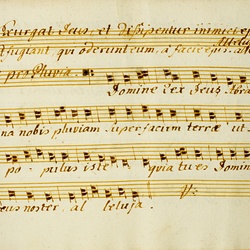 Exurgat Deus, et dissipentur inimici ejus
fugiant qui oderunt eum, a facie ejus. alleluja
pro Pluvia. Domine Rex Deus Abra
na nobis pluviam super faciem terrae ut
po- pulus iste quia tu es Domin
eus noster. al leluja.